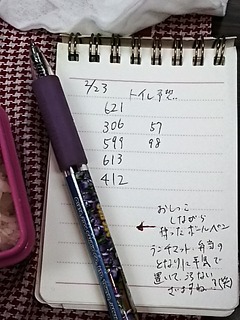 2/23
トイレ予定..
621
306 57
599 98
613
412
おしっこ
しながら
持ったボールペン
ランチマット・弁当の
となりに平気で
置いてごめんない
ざいますね
(笑)